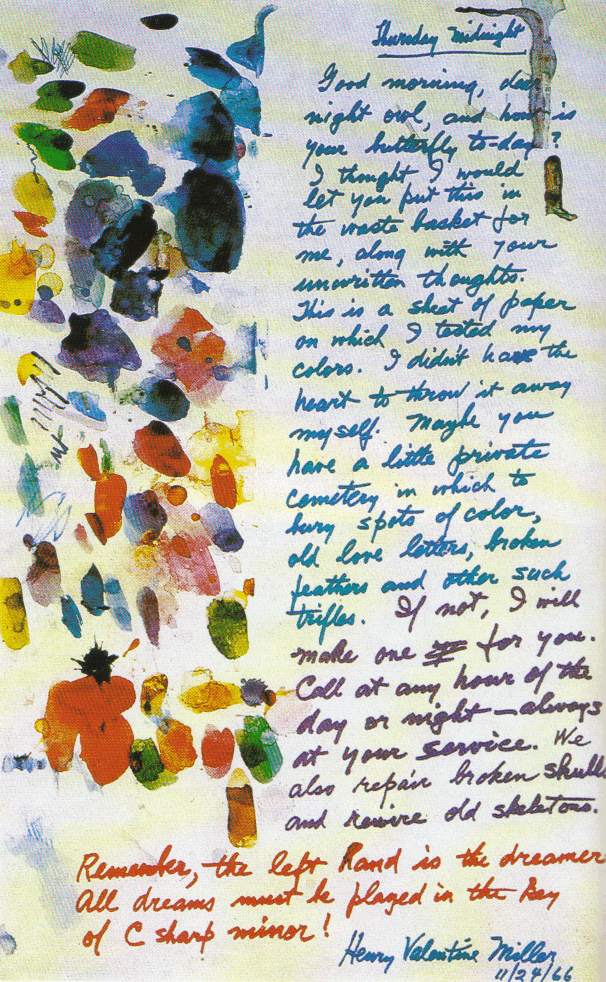 Thursday midnight
Good morning, dear
night owl, and how is
your butterfly to-day?
I thought I would
let you put this in
the waste basket for
me, along with your
unwritten thoughts.
This is a sheet of paper
on which I tested my
colors. I didn't have the
heart to throw it away
myself. Maybe you
have a little private
cemetery in which to
bury spots of color,
old love letters, broken
feathers and other such
trifles. If not, I will
make one for you.
Call at any hour of the
day or night—always
at your service. We
also repair broken skulls
and rewire old skeletons.
Remember, the left hand is the dreamer
All dreams must be played in the key
of C sharp minor!
Henry Valentine Miller
11/24/66